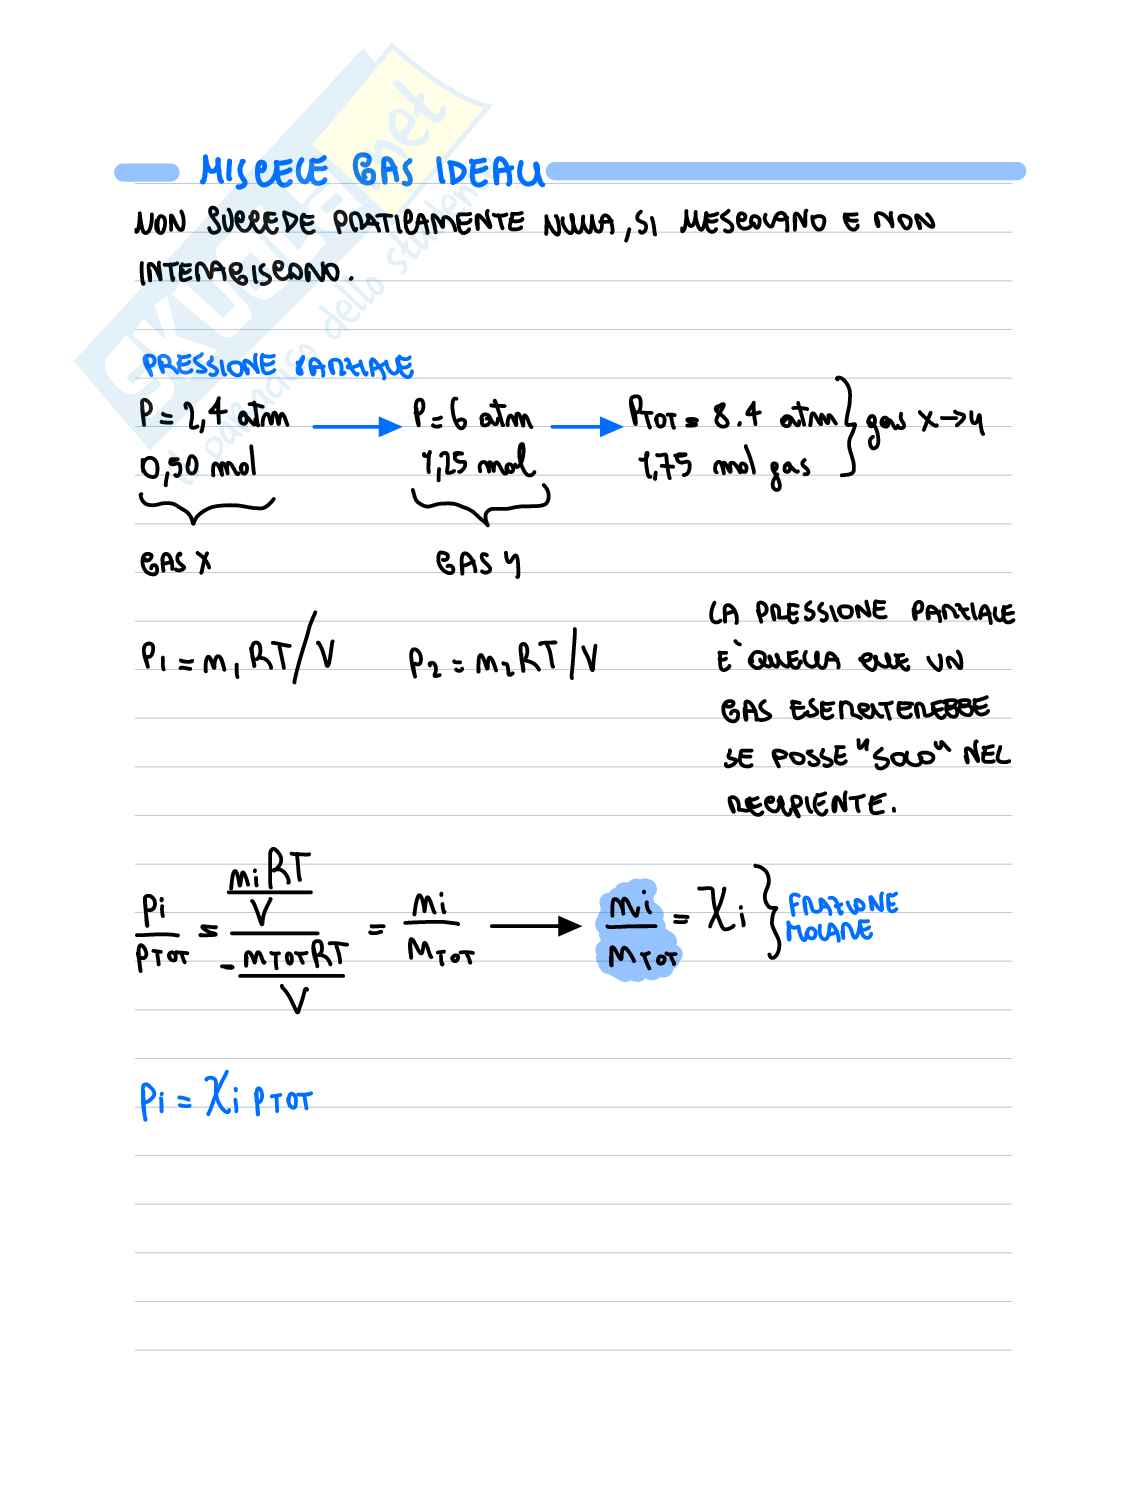 MISCELE GAS IDEALI
NON SUCCEDE PRATICAMENTE NULLA, SI MESCOLANO E NON
INTERAGISCONO.
PRESSIONE PARZIALE
P = 2,4 atm → P = 6 atm → PTOT = 8.4 atm } gas x → y
0,50 mol 1,25 mol 1,75 mol gas
GAS X GAS Y
P1 = n1 RT / V P2 = n2 RT / V
LA PRESSIONE PARZIALE
E' QUELLA CHE UN
GAS ESERCITEREBBE
SE FOSSE "SOLO" NEL
RECIPIENTE.
Pi / PTOT = (ni RT / V) / (nTOT RT / V) = ni / nTOT → ni / nTOT = χi } FRAZIONE
MOLARE
Pi = χi PTOT
SKUOLA.net
il paradiso dello studen